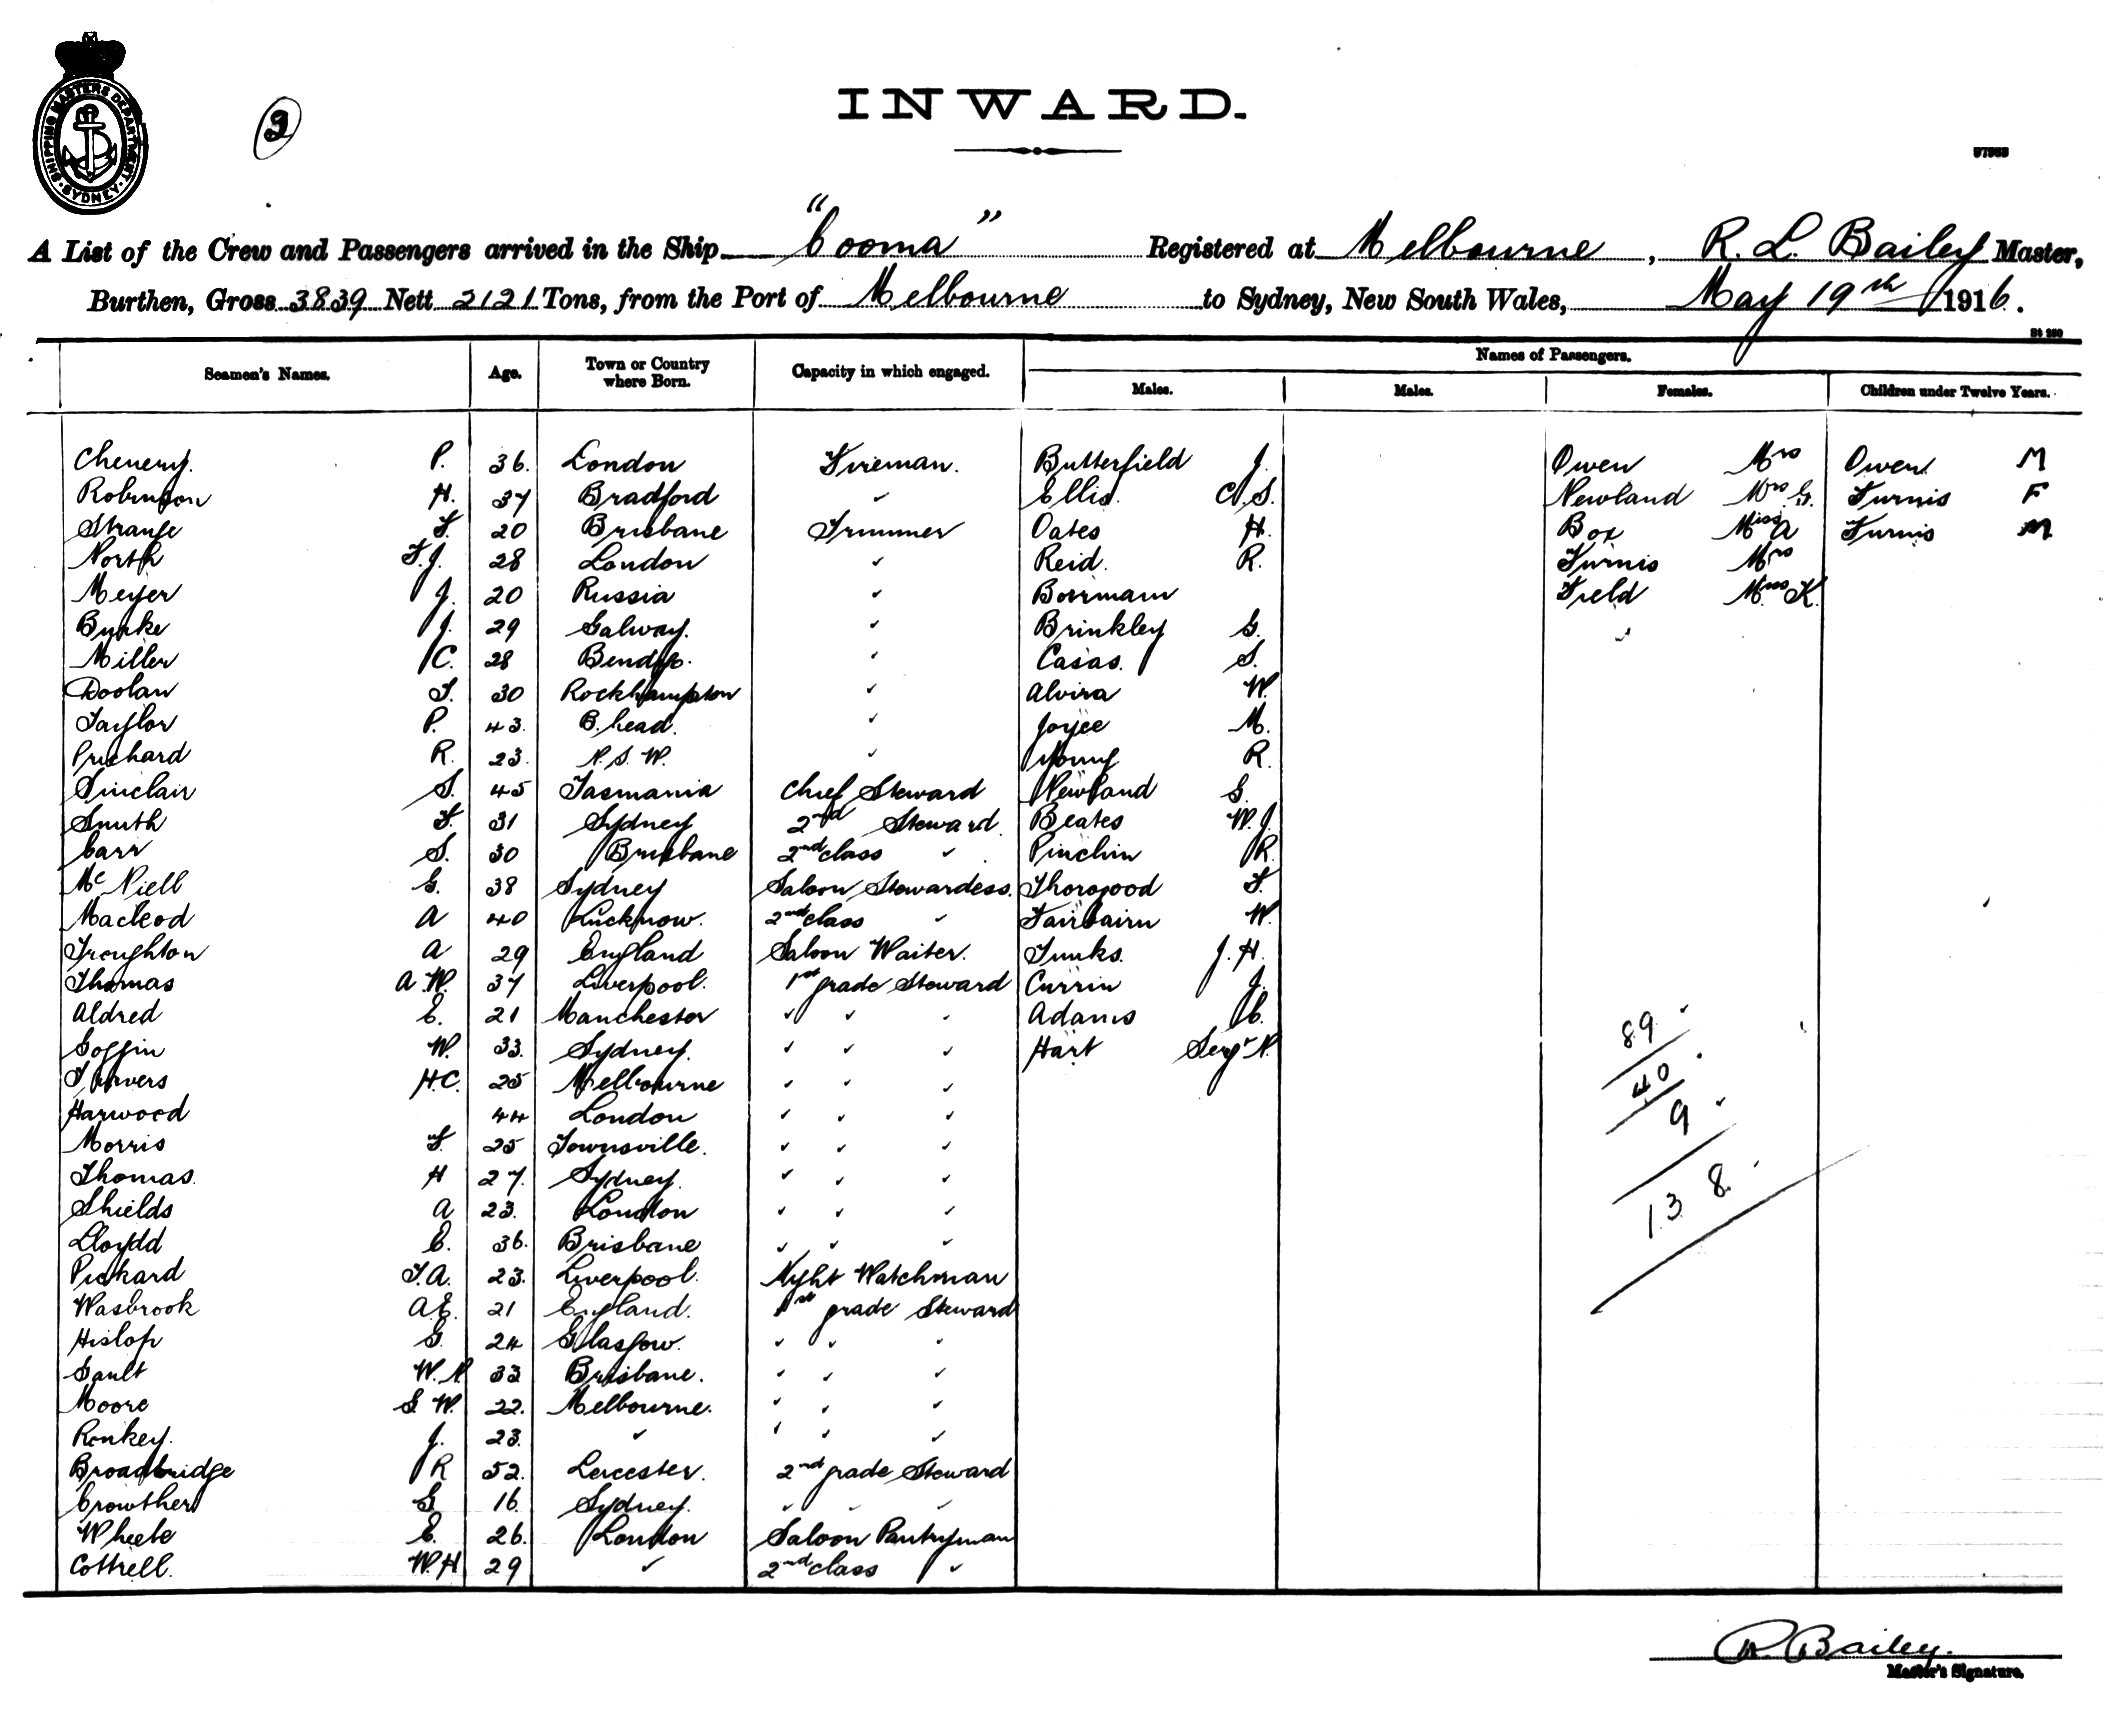 SHIPPING MASTERS DEPARTMENT SYDNEY
3
INWARD.
A List of the Crew and Passengers arrived in the Ship "Cooma" Registered at Melbourne, R. L. Bailey Master,
Burthen, Gross 3839 Nett 2121 Tons, from the Port of Melbourne to Sydney, New South Wales, May 19th 1916.
St 250
Names of Passengers.
Seamen's Names. Age. Town or Country where Born. Capacity in which engaged. Males. Males. Females. Children under Twelve Years.
Chenery. P. 36. London Fireman. Butterfield J. Owen Mrs Owen M
Robinson H. 37 Bradford " Ellis. C.S. Newland Mrs G. Furnis F
Strange F. 20 Brisbane Trimmer Oates H. Box Miss A Furnis M
North F.J. 28 London " Reid. R. Furnis Mrs
Meyer J. 20 Russia " Borrmann Field Miss K.
Burke J. 29 Galway. " Brinkley G.
Miller C. 28 Bendigo. " Casas. S.
Doolan T. 30 Rockhampton " Alvira W.
Taylor P. 43. B.head. " Joyce M.
Prichard R. 23. N.S.W. " Young R.
Sinclair S. 45 Tasmania Chief Steward Newland G.
Smith F. 31 Sydney 2nd Steward Beates W.J.
Carr S. 30 Brisbane 2nd class " Pinchin R.
Mc Niell G. 38 Sydney Saloon Stewardess. Thorogood F.
Macleod A 40 Lucknow. 2nd class " Fairbairn W.
Troughton A 29 England Saloon Waiter. Tunks. J.H.
Thomas A.W. 37 Liverpool. 1st grade Steward Currin J.
Aldred E. 21 Manchester " " " Adams C.
Goffin W. 33. Sydney. " " " Hart Sergt N.
Travers H.C. 25 Melbourne " " "
Harwood 44 London " " "
Morris F. 25 Townsville. " " "
Thomas. H 27. Sydney. " " "
Shields A 23. London " " "
Lloydd E. 36. Brisbane " " "
Pickard T.A. 23. Liverpool. Night Watchman
Wasbrook A.E. 21 England. 1st grade Steward
Hislop G. 24 Glasgow. " " "
Gault W.N. 33 Brisbane. " " "
Moore G W. 22. Melbourne. " " "
Ronkey. J. 23. " " " "
Broadbridge R 52. Leicester. 2nd grade Steward
Crowther G 16. Sydney. " " "
Wheele E. 26. London Saloon Pantryman
Cottrell. W.H 29 " 2nd class "
89
40
9
138.
R. Bailey.
Master's Signature.